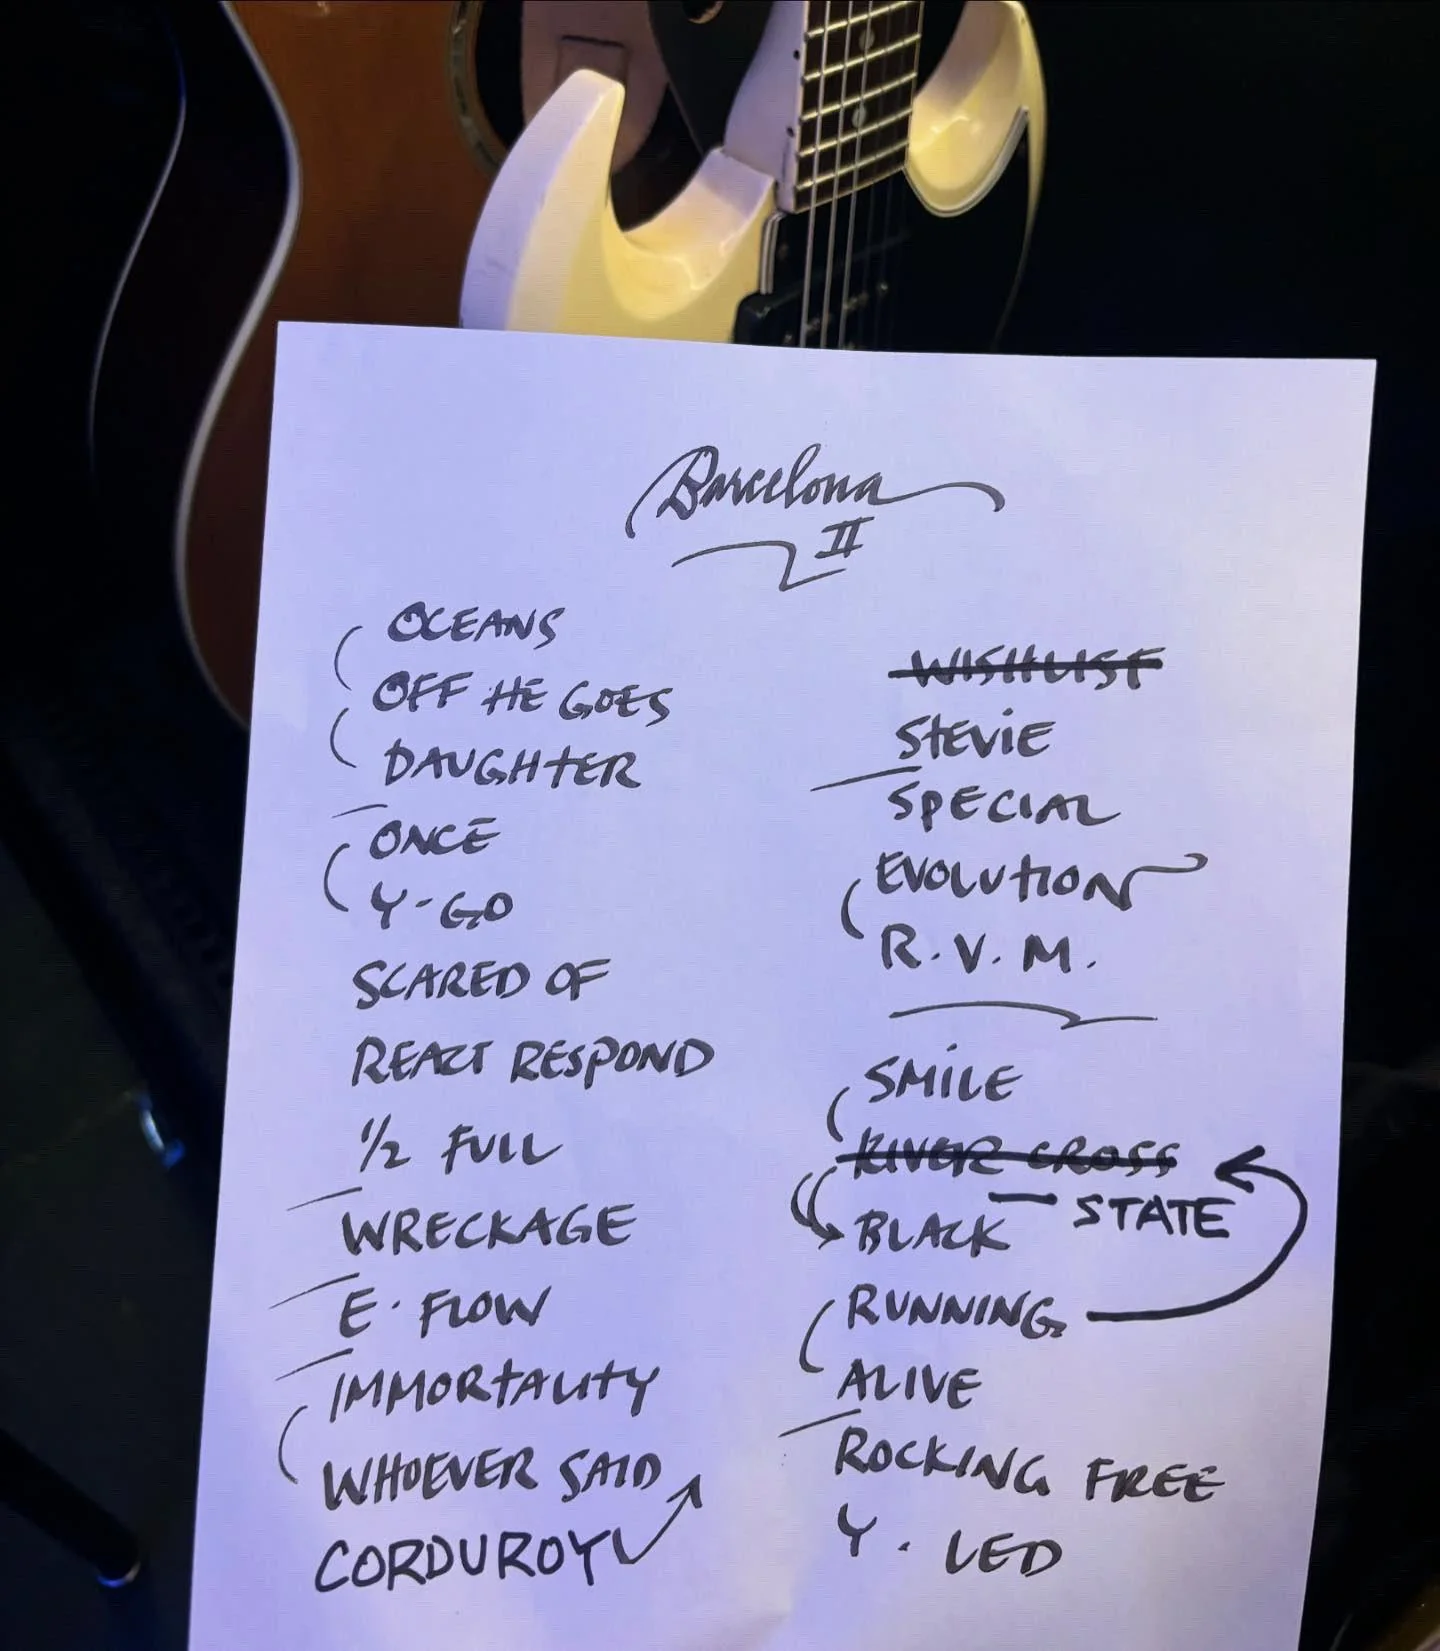 Barcelona
II
OCEANS
OFF HE GOES
DAUGHTER
ONCE
Y-GO
SCARED OF
REACT RESPOND
1/2 FULL
WRECKAGE
E. FLOW
IMMORTALITY
WHOEVER SAID
CORDUROY
WISHLIST
STEVIE
SPECIAL
EVOLUTION
R.V.M.
SMILE
RIVER CROSS
STATE
BLACK
RUNNING
ALIVE
ROCKING FREE
Y. LED